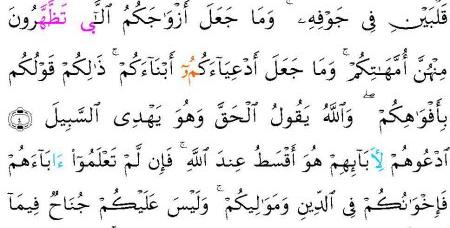 قَلْبَيْنِ فِى جَوْفِهِۦ ۚ وَمَا جَعَلَ أَزْوَٰجَكُمُ اُلَّٰٓـِٔى تَظَّهَّرُونَ
مِنْهُنَّ أُمَّهَٰتِكُمْ ۚ وَمَا جَعَلَ أَدْعِيَآءَكُمُۥٓ أَبْنَآءَكُمْ ۚ ذَٰلِكُمْ قَوْلُكُم
بِأَفْوَٰهِكُمْ ۖ وَٱللَّهُ يَقُولُ ٱلْحَقَّ وَهْوَ يَهْدِى ٱلسَّبِيلَ ٤
ٱدْعُوهُمْ لِأَبَآئِهِمْ هُوَ أَقْسَطُ عِندَ ٱللَّهِ ۚ فَإِن لَّمْ تَعْلَمُوٓا۟ ءَابَآءَهُمْ
فَإِخْوَٰنُكُمْ فِى ٱلدِّينِ وَمَوَٰلِيكُمْ ۚ وَلَيْسَ عَلَيْكُمْ جُنَاحٌ فِيمَآ